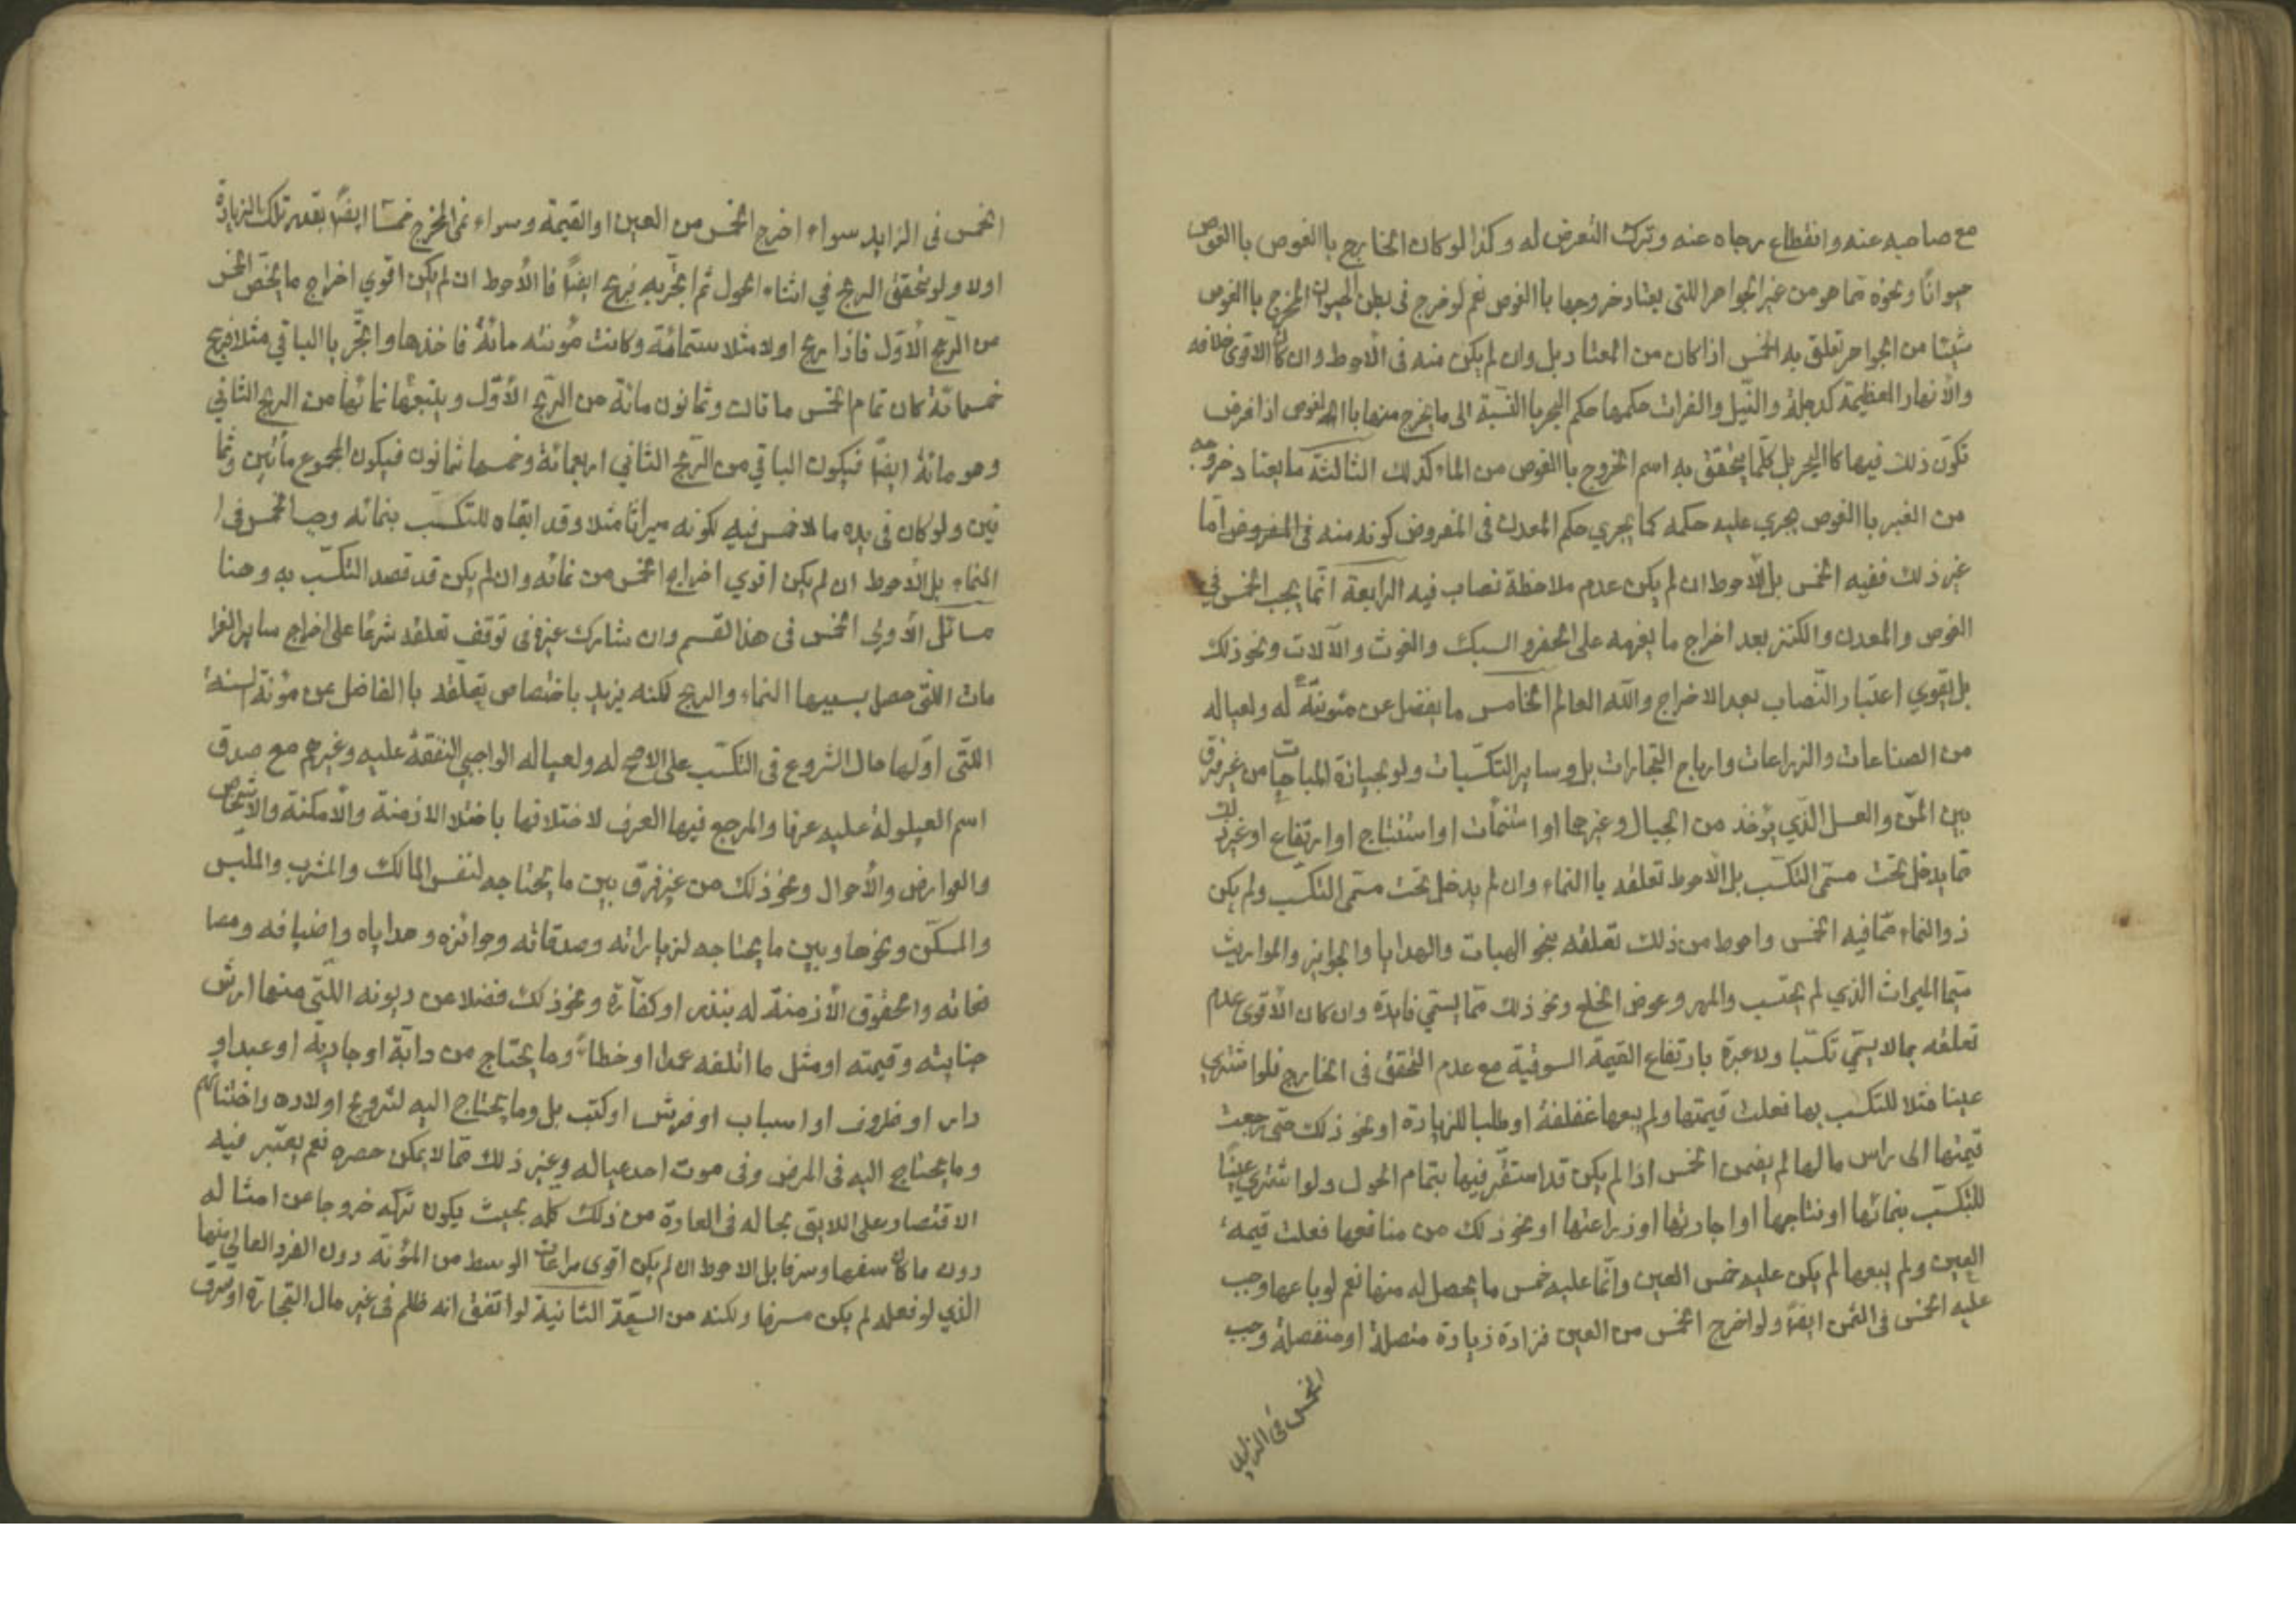 مع صاحبه عنه وانقطاع رجاه عنه وترك التعرض له وكذا لو كان الخارج باالغوص باالغوص
حيوانًا ونحوه مما هو من غير الجواهر اللتي يعتاد خروجها باالغوص نعم لو خرج في بطن الحيوان المخرج باالغوص
شيئا من الجواهر تعلق به الخمس اذا كان من المعتاد بل وان لم يكن منه في الاحوط وان كان الاقوى خلافه
والأنهار العظيمة كدجلة والنيل والفرات حكمها حكم البحر باالنسبة الى ما يخرج منها باالغوص اذا فرض
تكوّن ذلك فيها كاالبحر بل كلّما يتحقق به اسم الخروج باالغوص من الماء كذلك الثالثة ما يعتاد خروجه
من الغير باالغوص يجري عليه حكمه كما يجري حكم المعدن في المفروض كونه منه في المفروض امّا
غير ذلك ففيه الخمس بل الأحوط ان لم يكن عدم ملاحظة نصاب فيه الرابعة انّما يجب الخمس في
الغوص والمعدن والكنز بعد اخراج ما يغرمه على الحفر والسبك والغوث والآلات ونحو ذلك
بل يقوي اعتبار النّصاب بعد الاخراج والله العالم الخامس ما يفضل عن مئونة له ولعياله
من الصناعات والزراعات وارباح التجارات بل وساير التكسّبات ولو بحيازة المباحات من غير فرق
بين المنّ والعسل الذّي يؤخذ من الجبال وغيرها او استنمآت او استنتاج او ارتفاع او غير ذلك
مما يدخل تحت مسمّى التكسّب بل الأحوط تعلقه باالنماء وان لم يدخل تحت مسمّى التكسّب ولم يكن
ذو النماء ممّا فيه الخمس واحوط من ذلك تعلقه بنحو الهبات والهدايا والجوايز والمواريث
سيّما الميراث الذي لم يحتسب والمهر وعوض الخلع ونحو ذلك ممّا يسمّي فايدة وان كان الأقوى عدم
تعلقه بما لا يسمّي تكسّبا ولا عبرة بارتفاع القيمة السوقية مع عدم التحقق في الخارج فلو اشتري
عينا مثلا للتكسب بها فعلت قيمتها ولم يبعها غفلة او طلبا للزيادة او نحو ذلك حتى رجعت
قيمتها الى راس مالها لم يضمن الخمس اذا لم يكن قد استقّر فيها بتمام الحول ولو اشتري عينًا
للتكسّب بنمائها او نتاجها او اجارتها او زراعتها او نحو ذلك من منافعها فعلت قيمة
العين ولم يبعها لم يكن عليه خمس العين وانّما عليه خمس ما يحصل له منها نعم لو باعها وجب
عليه الخمس في الثمن ايضًا ولو اخرج الخمس من العين فزادة زيادة متصلة او منفصلة وجب
الخمس في الزايد
الخمس في الزايد سواء اخرج الخمس من العين او القيمة وسواء نمى المخرج خمسًا ايضًا بقدر تلك الزيادة
اولا ولو تحقق الربح في اثناء الحول ثم اتجّر به فربح ايضًا فا الأحوط ان لم يكن اقوي اخراج ما يخصّ الخمس
من الرّبح الأوّل فاذا ربح اولا مثلا ستمائة وكانت مؤنته مائة فاخذها واتجّر باالباقي مثلا فربح
خمسمائة كان تمام الخمس مائتان وثمانون مائة من الرّبح الأوّل ويتبعها نمائها من الربح الثاني
وهو مائة ايضًا فيكون الباقي من الرّبح الثاني اربعمائة وخمسها ثمانون فيكون المجموع مأتين وثما
نين ولو كان في يده ما لا خمس فيه لكونه ميراثا مثلا وقد ابقاه للتكسّب بنمائه وجب الخمس في
النماء بل الأحوط ان لم يكن اقوي اخراج الخمس من نمائه وان لم يكن قد قصد التكسّب به وهنا
مسائل الأولى الخمس في هذا القسم وان شارك غيره في توقف تعلقه شرعًا على اخراج ساير الغرا
مات اللتي حصل بسببها النماء والربح لكنه يزيد باختصاص تعلّقه باالفاضل عن مؤنة السنة
اللتي اوّلها حال الشروع في التكسّب على الاصح له ولعياله الواجبي النفقة عليه وغيرهم مع صدق
اسم العيلولة عليه عرفا والمرجع فيها العرف لاختلافها باختلا الازمنة والأمكنة والاشخاص
والعوارض والأحوال ونحو ذلك من غير فرق بين ما يحتاجه لنفس المالك والمشرب والملبس
والمسكن ونحوها وبين ما يحتاجه لزياراته وصدقاته وجوائزه وهداياه واضيافه ومصا
نحاته والحقوق الأزمنة له بنذر او كفّارة ونحو ذلك فضلا عن ديونه اللتي منها ارش
جنايته وقيمته او مثل ما اتلفه عمدا او خطاءً وما يحتاج من دابّة او جارية او عبد او
دار او ظروف او اسباب او فرش او كتب بل وما يحتاج اليه لتزويج اولاده واختتانهم
وما يحتاج اليه في المرض وفي موت احد عياله وغير ذلك ممّا لا يمكن حصره نعم يعتبر فيه
الاقتصار على اللايق بحاله في العادة من ذلك كلّه بحيث يكون تركه خروجا عن امثاله
دون ما كان سفها وسرفا بل الاحوط ان لم يكن اقوى مراعات الوسط من المؤنة دون الفرد العالي منها
الذي لو فعله لم يكن مسرفا ولكنه من السّعة الثانية لو اتفق انه ظلم في غير مال التجارة او سرق